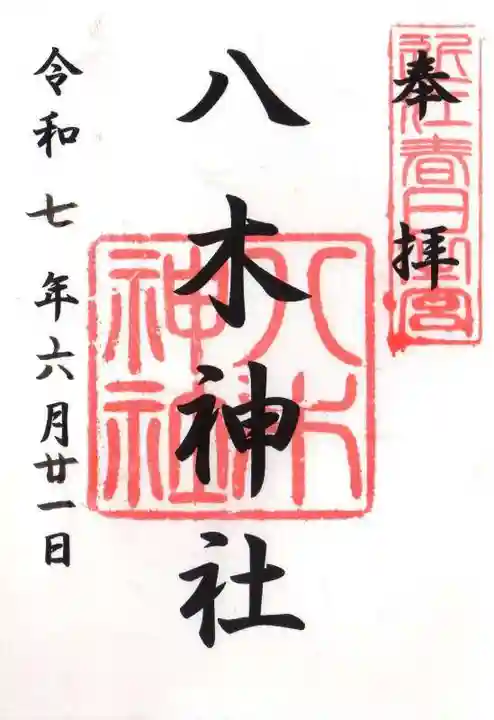 奉拝
近江春日新宮
八木神社
八木神社
令和七年六月廿一日